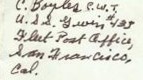 C. Boyles C.W.T.
U.S.S. Gwin #433
Fleet Post Office,
San Francisco,
Cal.